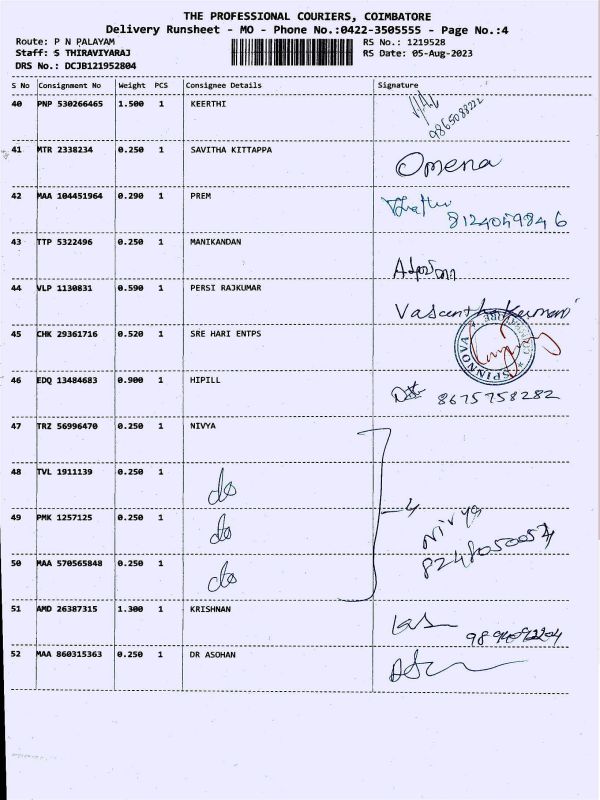 THE PROFESSIONAL COURIERS, COIMBATORE
Delivery Runsheet - MO - Phone No.:0422-3505555 - Page No.:4
Route: P N PALAYAM
RS No.: 1219528
Staff: S THIRAVIYARAJ
RS Date: 05-Aug-2023
DRS No.: DCJB121952804
S No Consignment No Weight PCS Consignee Details Signature
40 PNP 530266465 1.500 1 KEERTHI
9865088222
41 MTR 2338234 0.250 1 SAVITHA KITTAPPA
Omena
42 MAA 104451964 0.290 1 PREM
8124059846
43 TTP 5322496 0.250 1 MANIKANDAN
44 VLP 1130831 0.590 1 PERSI RAJKUMAR
Vasantha Kumari
45 CHK 29361716 0.520 1 SRE HARI ENTPS
SPINNOVA
46 EDQ 13484683 0.900 1 HIPILL
8675758282
47 TRZ 56996470 0.250 1 NIVYA
48 TVL 1911139 0.250 1 do
49 PMK 1257125 0.250 1 do
4
Nivya
50 MAA 570565848 0.250 1 do
51 AMD 26387315 1.300 1 KRISHNAN
52 MAA 860315363 0.250 1 DR ASOHAN